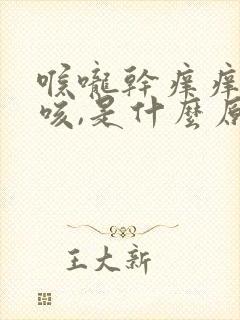 喉嚨幹癢癢
咳,是什麼原
王大新